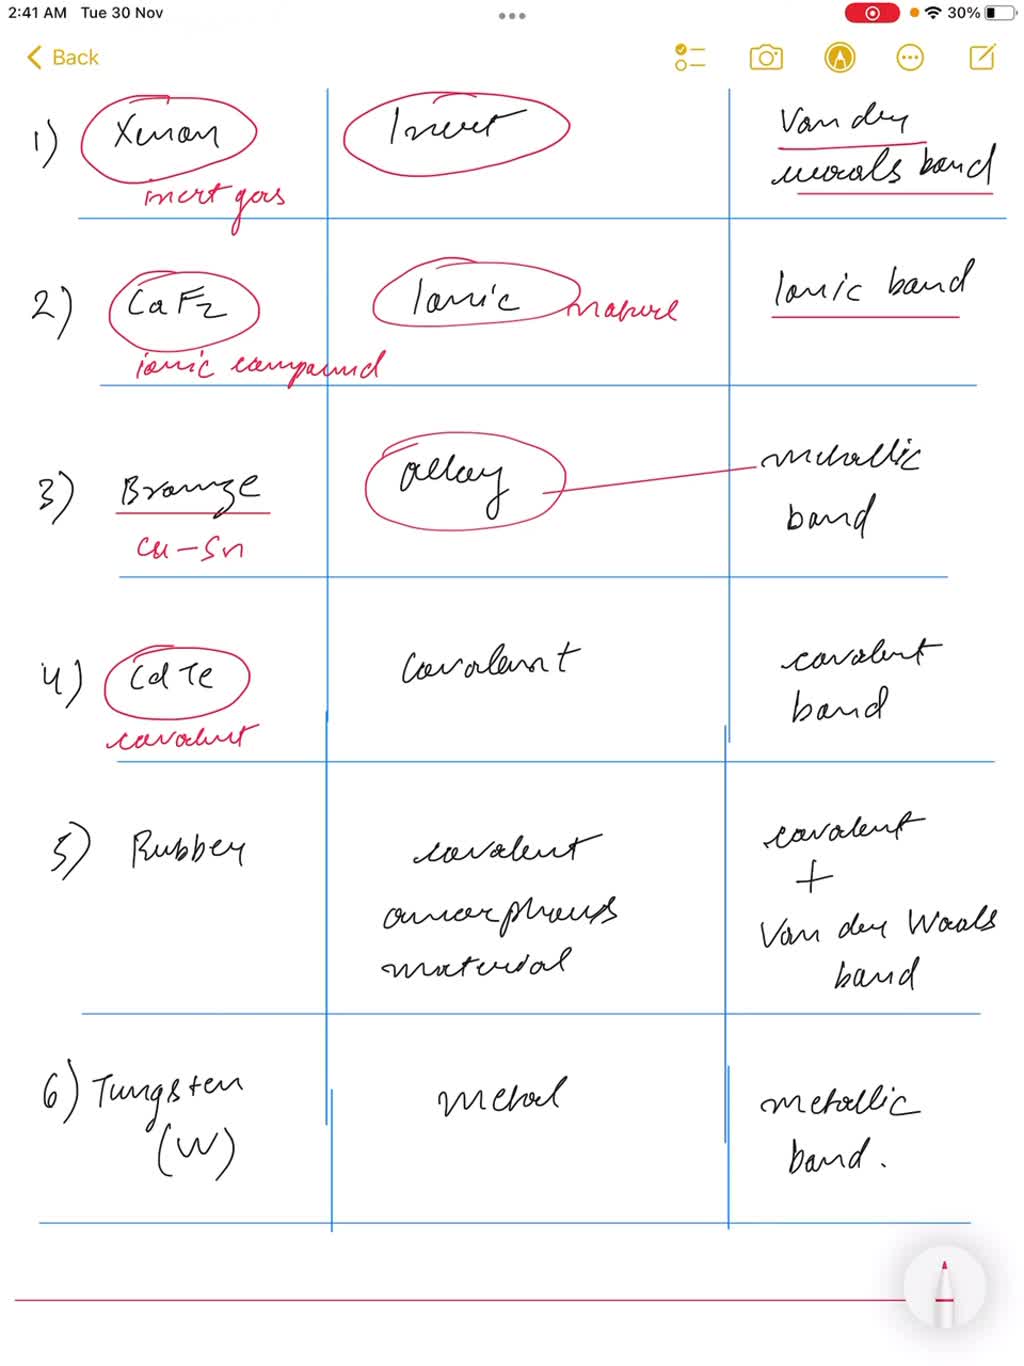 2:41 AM Tue 30 Nov
30%
Back
1) Xenon
inert gas
Inert
Van der
waals bond
2) CaF2
ionic compound
Ionic nature
Ionic bond
3) Bronze
Cu-Sn
alloy
metallic
bond
4) CdTe
covalent
covalent
covalent
bond
5) Rubber
covalent
amorphous
material
covalent
+
Van der Waals
bond
6) Tungsten
(W)
metal
metallic
bond.